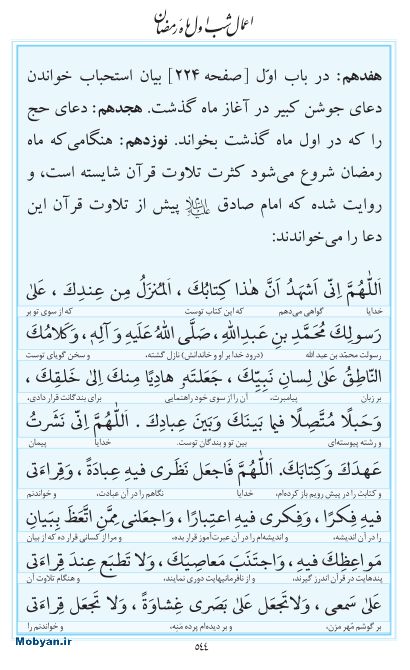 اعمال شب اول ماه رمضان
هفدهم: در باب اوّل [صفحه ۲۲۴] بیان استحباب خواندن
دعای جوشن کبیر در آغاز ماه گذشت. هجدهم: دعای حج
را که در اول ماه گذشت بخواند. نوزدهم: هنگامی‌که ماه
رمضان شروع می‌شود کثرت تلاوت قرآن شایسته است، و
روایت شده که امام صادق علیه‌السلام پیش از تلاوت قرآن این
دعا را می‌خواندند:
اَللّٰهُمَّ اِنّی اَشهَدُ اَنَّ هٰذا کِتابُکَ ، اَلمُنزَلُ مِن عِندِکَ ، عَلیٰ
خدایا گواهی می‌دهم که این کتاب توست که از سوی تو بر
رَسولِکَ مُحَمَّدِ بنِ عَبدِاللهِ ، صَلَّی اللهُ عَلَیهِ وَ آلِهِ ، وَکَلامُکَ
رسولت محمّد بن عبد الله (درود خدا بر او و خاندانش) نازل گشته، و سخن گویای توست
النّاطِقُ عَلیٰ لِسانِ نَبِیِّکَ ، جَعَلتَهُ هادِیًا مِنکَ اِلیٰ خَلقِکَ ،
بر زبان پیامبرت، آن را از سوی خود راهنمایی برای بندگانت قرار دادی،
وَحَبلًا مُتَّصِلًا فیما بَینَکَ وَبَینَ عِبادِکَ . اَللّٰهُمَّ اِنّی نَشَرتُ
و رشته پیوسته‌ای بین تو و بندگان توست. خدایا پیمان
عَهدَکَ وَکِتابَکَ. اَللّٰهُمَّ فَاجعَل نَظَری فیهِ عِبادَةً ، وَقِراءَتی
و کتابت را در پیش رویم باز کرده‌ام، خدایا نگاهم را در آن عبادت، و خواندنم
فیهِ فِکرًا ، وَفِکری فیهِ اعتِبارًا ، وَاجعَلنی مِمَّنِ اتَّعَظَ بِبَیانِ
را در آن اندیشه، و اندیشه‌ام را در آن عبرت‌آموز قرار بده، و مرا از کسانی قرار ده که از بیان
مَواعِظِکَ فیهِ ، وَاجتَنَبَ مَعاصِیَکَ ، وَلا تَطبَع عِندَ قِراءَتی
پندهایت در قرآن اندرز گیرند، و از نافرمانیهایت دوری نمایند، و هنگام تلاوت آن
عَلیٰ سَمعی ، وَلاتَجعَل عَلیٰ بَصَری غِشاوَةً ، وَلا تَجعَل قِراءَتی
بر گوشم مُهر مزن، و بر دیده‌ام پرده منه، و خواندنم را
۵۴۴
Mobyan.ir